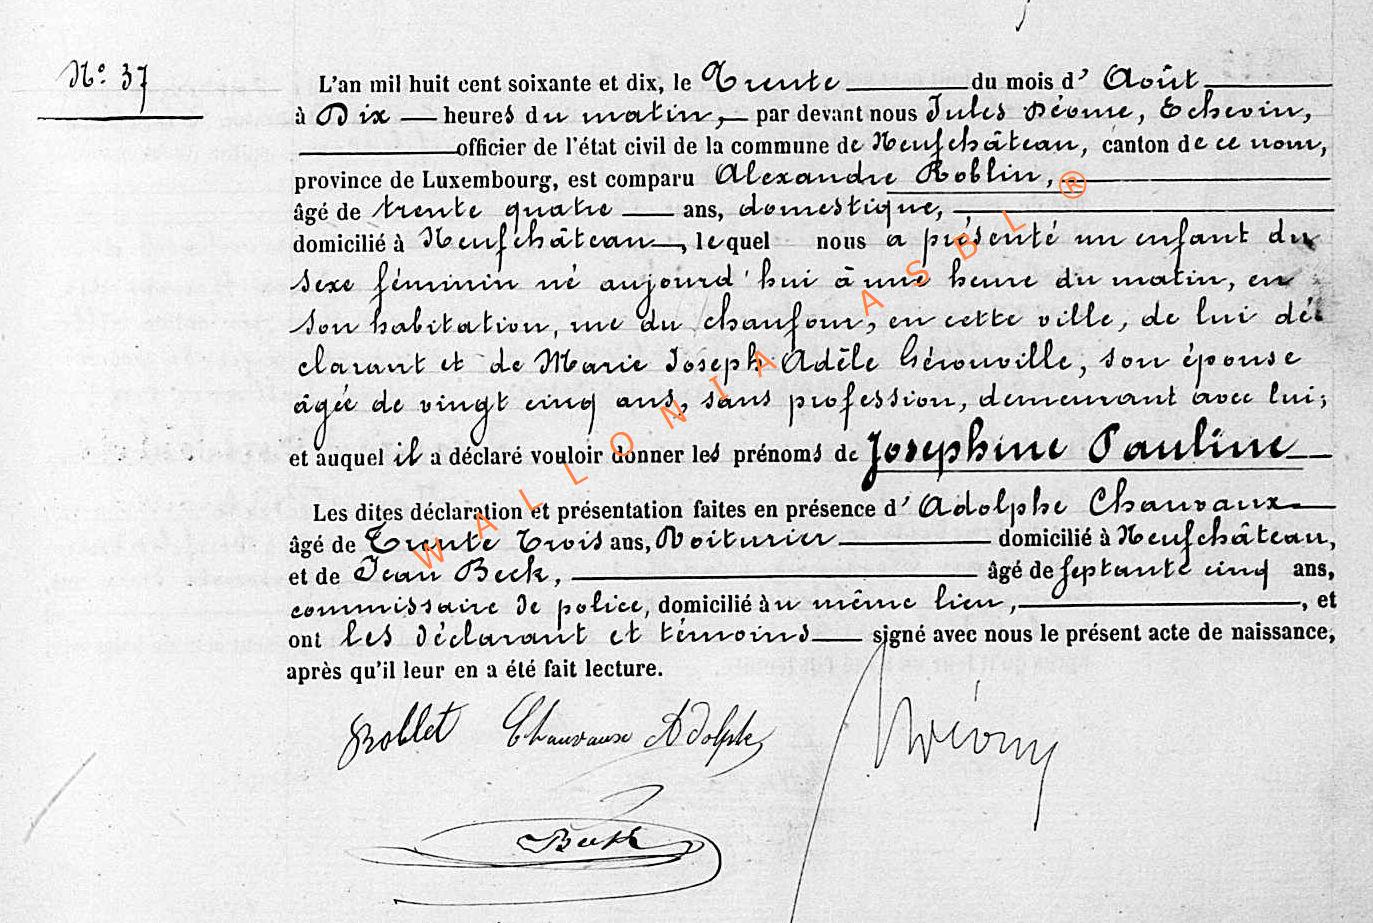 N° 37
L'an mil huit cent soixante et dix, le Trente du mois d' Août
à Dix heures du matin, par devant nous Jules Déome, Echevin,
officier de l'état civil de la commune de Neufchâteau, canton de ce nom,
province de Luxembourg, est comparu Alexandre Roblin,
âgé de trente quatre ans, domestique,
domicilié à Neufchâteau, lequel nous a présenté un enfant du
sexe féminin né aujourd'hui à une heure du matin, en
son habitation, rue du chaufour, en cette ville, de lui dé
clarant et de Marie Joseph Adèle Gérouville, son épouse
âgée de vingt cinq ans, sans profession, demeurant avec lui;
et auquel il a déclaré vouloir donner les prénoms de Josephine Pauline
Les dites déclaration et présentation faites en présence d' Adolphe Chauvaux
âgé de Trente Trois ans, Voiturier domicilié à Neufchâteau,
et de Jean Beck, âgé de septante cinq ans,
commissaire de police, domicilié au même lieu, et
ont les déclarant et témoins signé avec nous le présent acte de naissance,
après qu'il leur en a été fait lecture.
Roblet Chauvaux Adolphe
Beck
WALLONIA ASBL ®